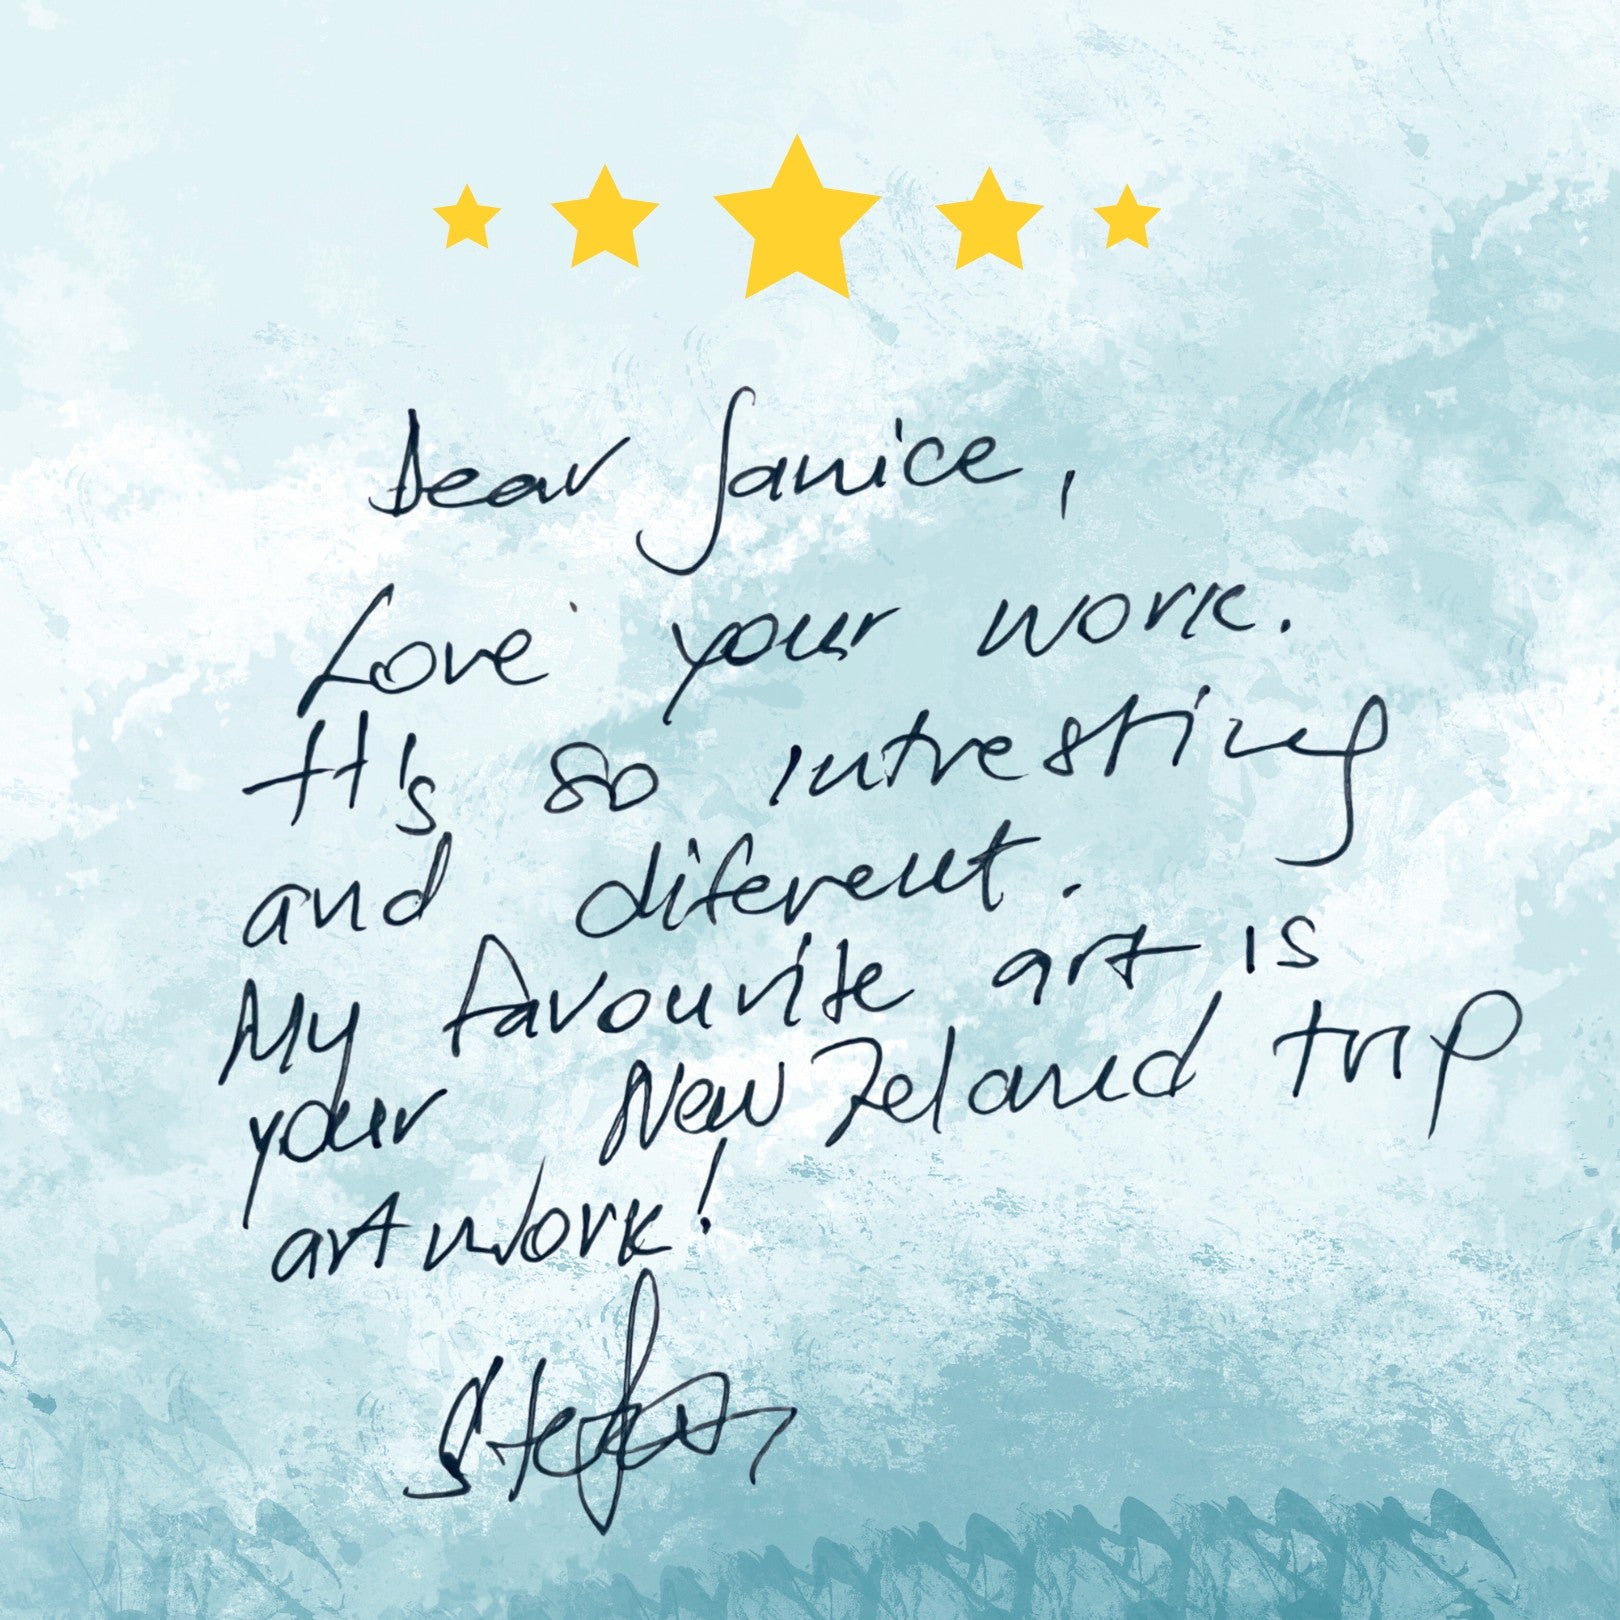 Dear Janice,
Love your work.
It's so intresting
and diferent.
My favourite art is
your New Zeland trip
artwork!
Stefan